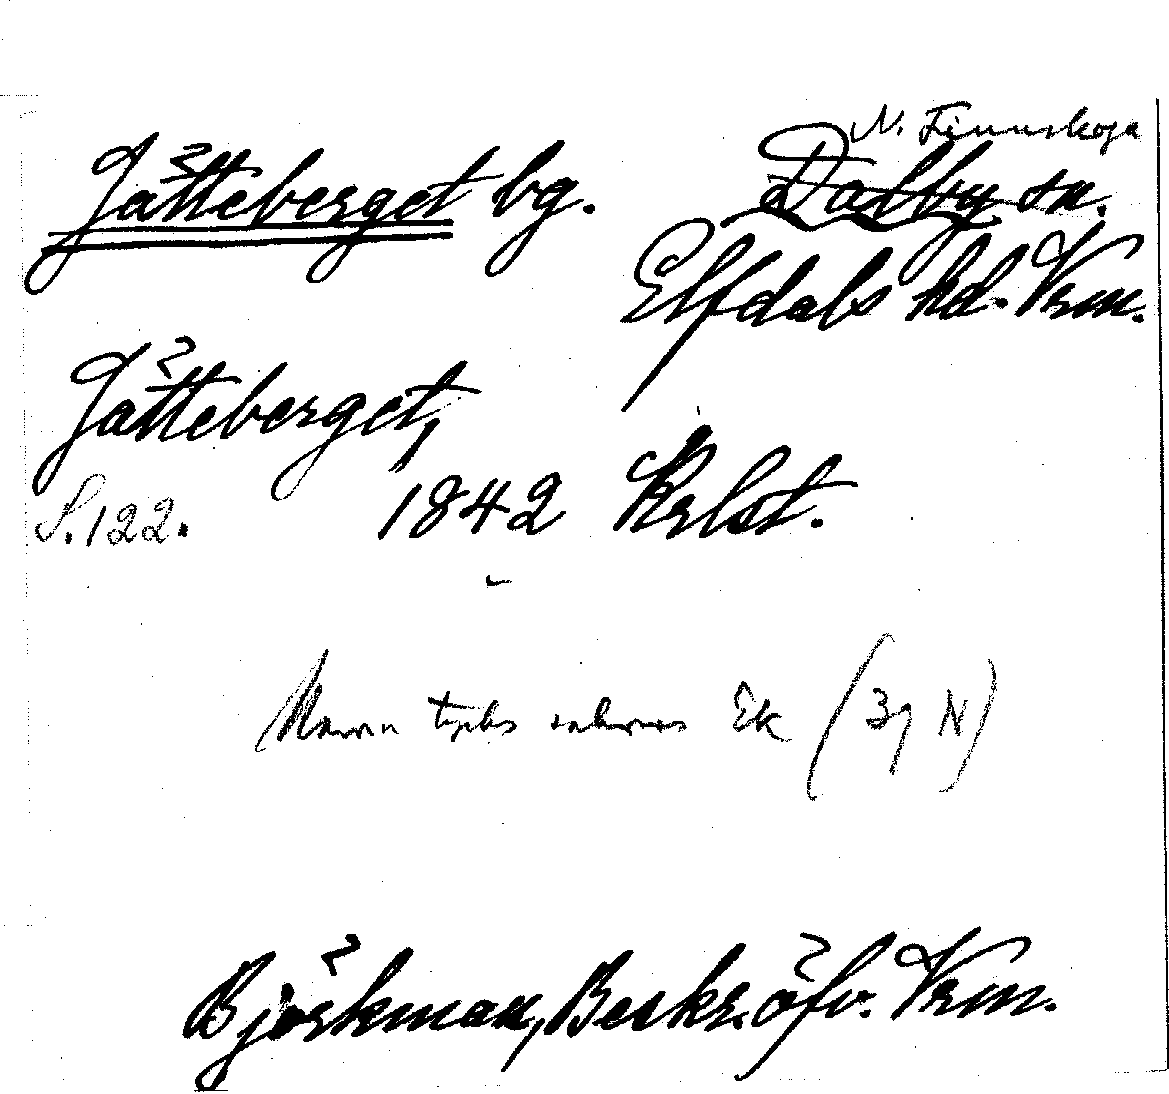 N. Finnskoga
Jätteberget bg. Dalby sn.
Elfdals hd. Vrm.
Jätteberget,
S. 122. 1842 Krlst.
Namn tycks saknas Ek (39 N)
Björkman, Beskr. öfv. Vrm.